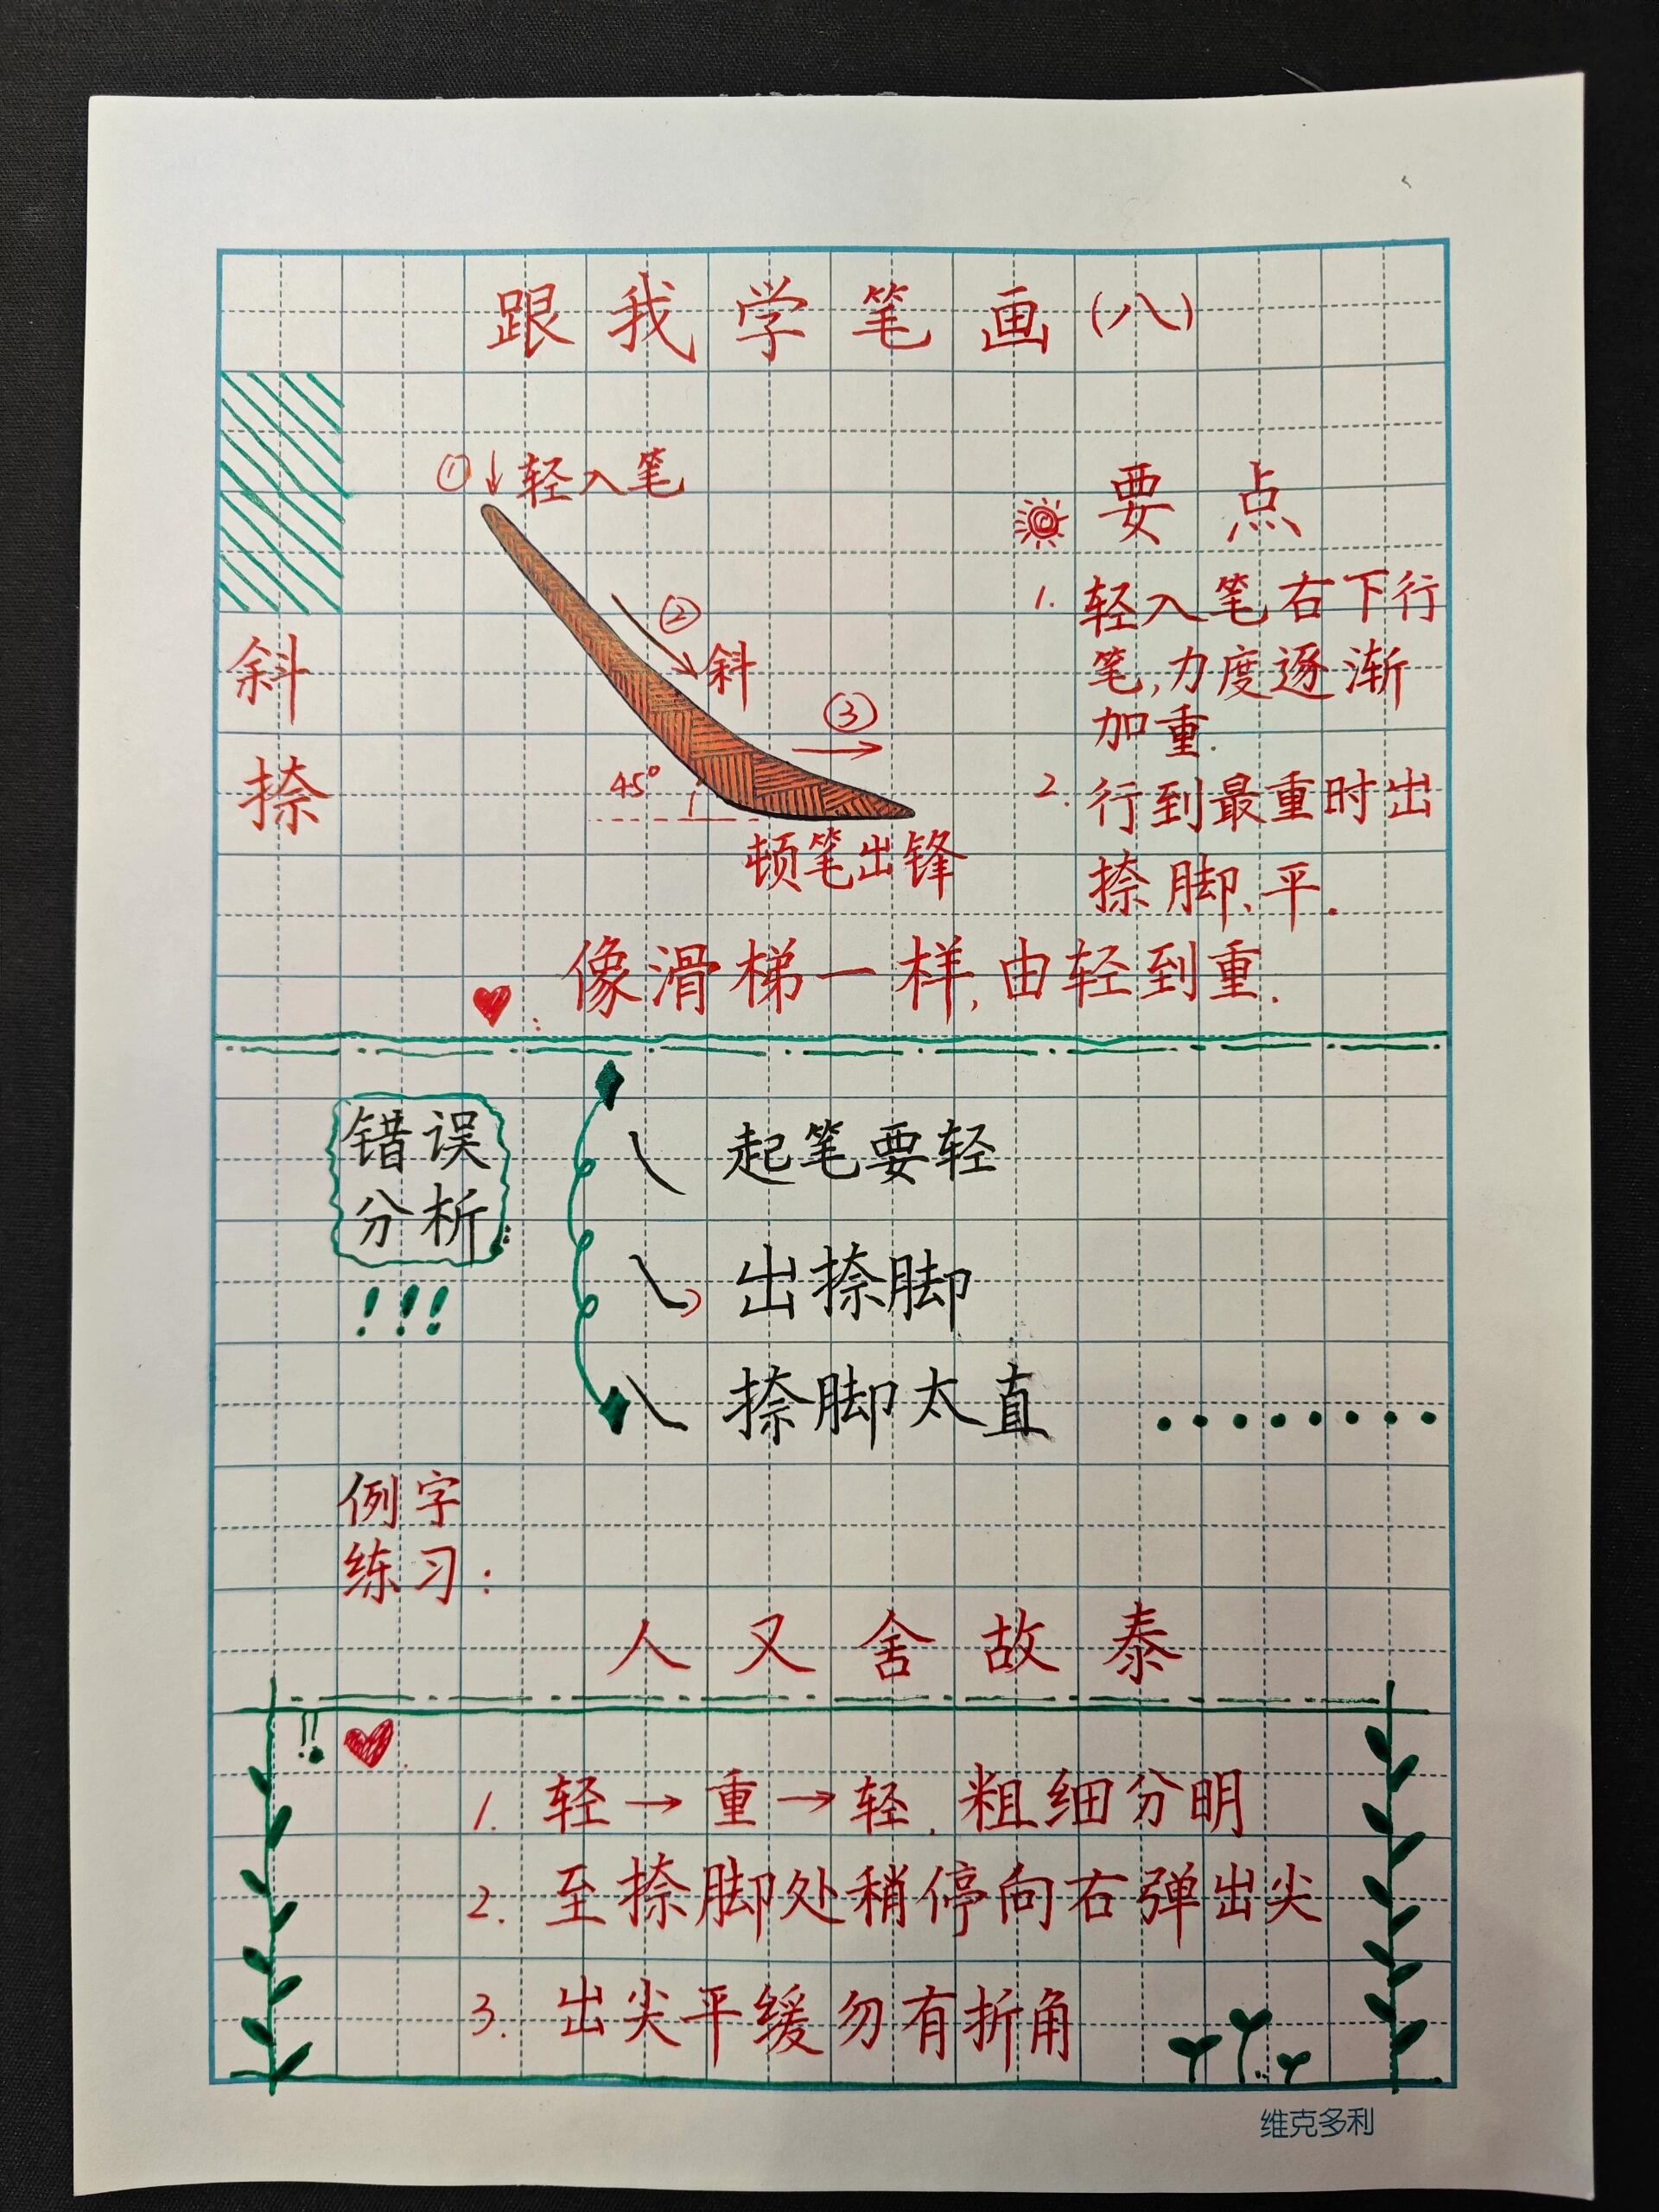 跟我学笔画(八)
①↓轻入笔
②
斜
③
45°
顿笔出锋
斜
捺
要点
1. 轻入笔右下行
笔,力度逐渐
加重.
2. 行到最重时出
捺脚、平.
像滑梯一样,由轻到重.
错误
分析
!!!
起笔要轻
出捺脚
捺脚太直
例字
练习:
人又舍故泰
1. 轻→重→轻.粗细分明
2. 至捺脚处稍停向右弹出尖
3. 出尖平缓勿有折角
维克多利